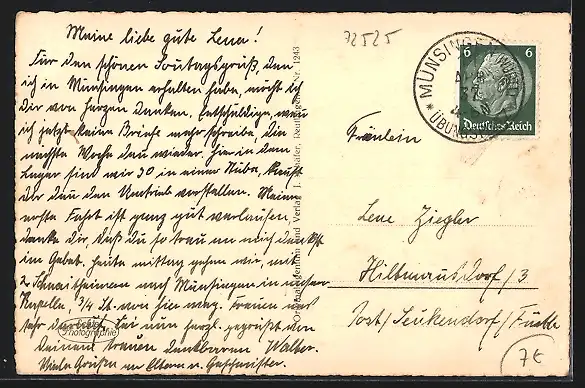 Meine liebe gute Lena!
Für den schönen Sonntagsgruß, den
ich in Münsingen erhalten habe, möcht ich
Dir von Herzen danken. Entschuldige, wenn
ich jetzt keine Briefe mehr schreibe. Die
nächste Woche dann wieder hier in dem
Lager sind wir 30 in einer Stube, kannst
Dir da den Umtrieb vorstellen. Meine
erste Fahrt ist ganz gut verlaufen,
danke Dir, daß Du so treu an mich denkst
im Gebet. Heute mittag gehen wir, mit
2 nach Münsingen in unsere
Kapelle. 3/4 St. von hier weg. Freuen uns
sehr darauf. Sei nun herzl. gegrüßt von
Deinem treuen dankbaren Walter.
Viele Grüße an Eltern u. Geschwister.
Photographie
Originalaufnahme und Verlag J. Schäfer, Reutlingen Nr. 1243
72525
MÜNSINGEN
ÜBUNGS
6 6
Deutsches Reich
Fräulein
Lene Ziegler
Hiltmannsdorf/3
Post/Seukendorf/Fürth
7€